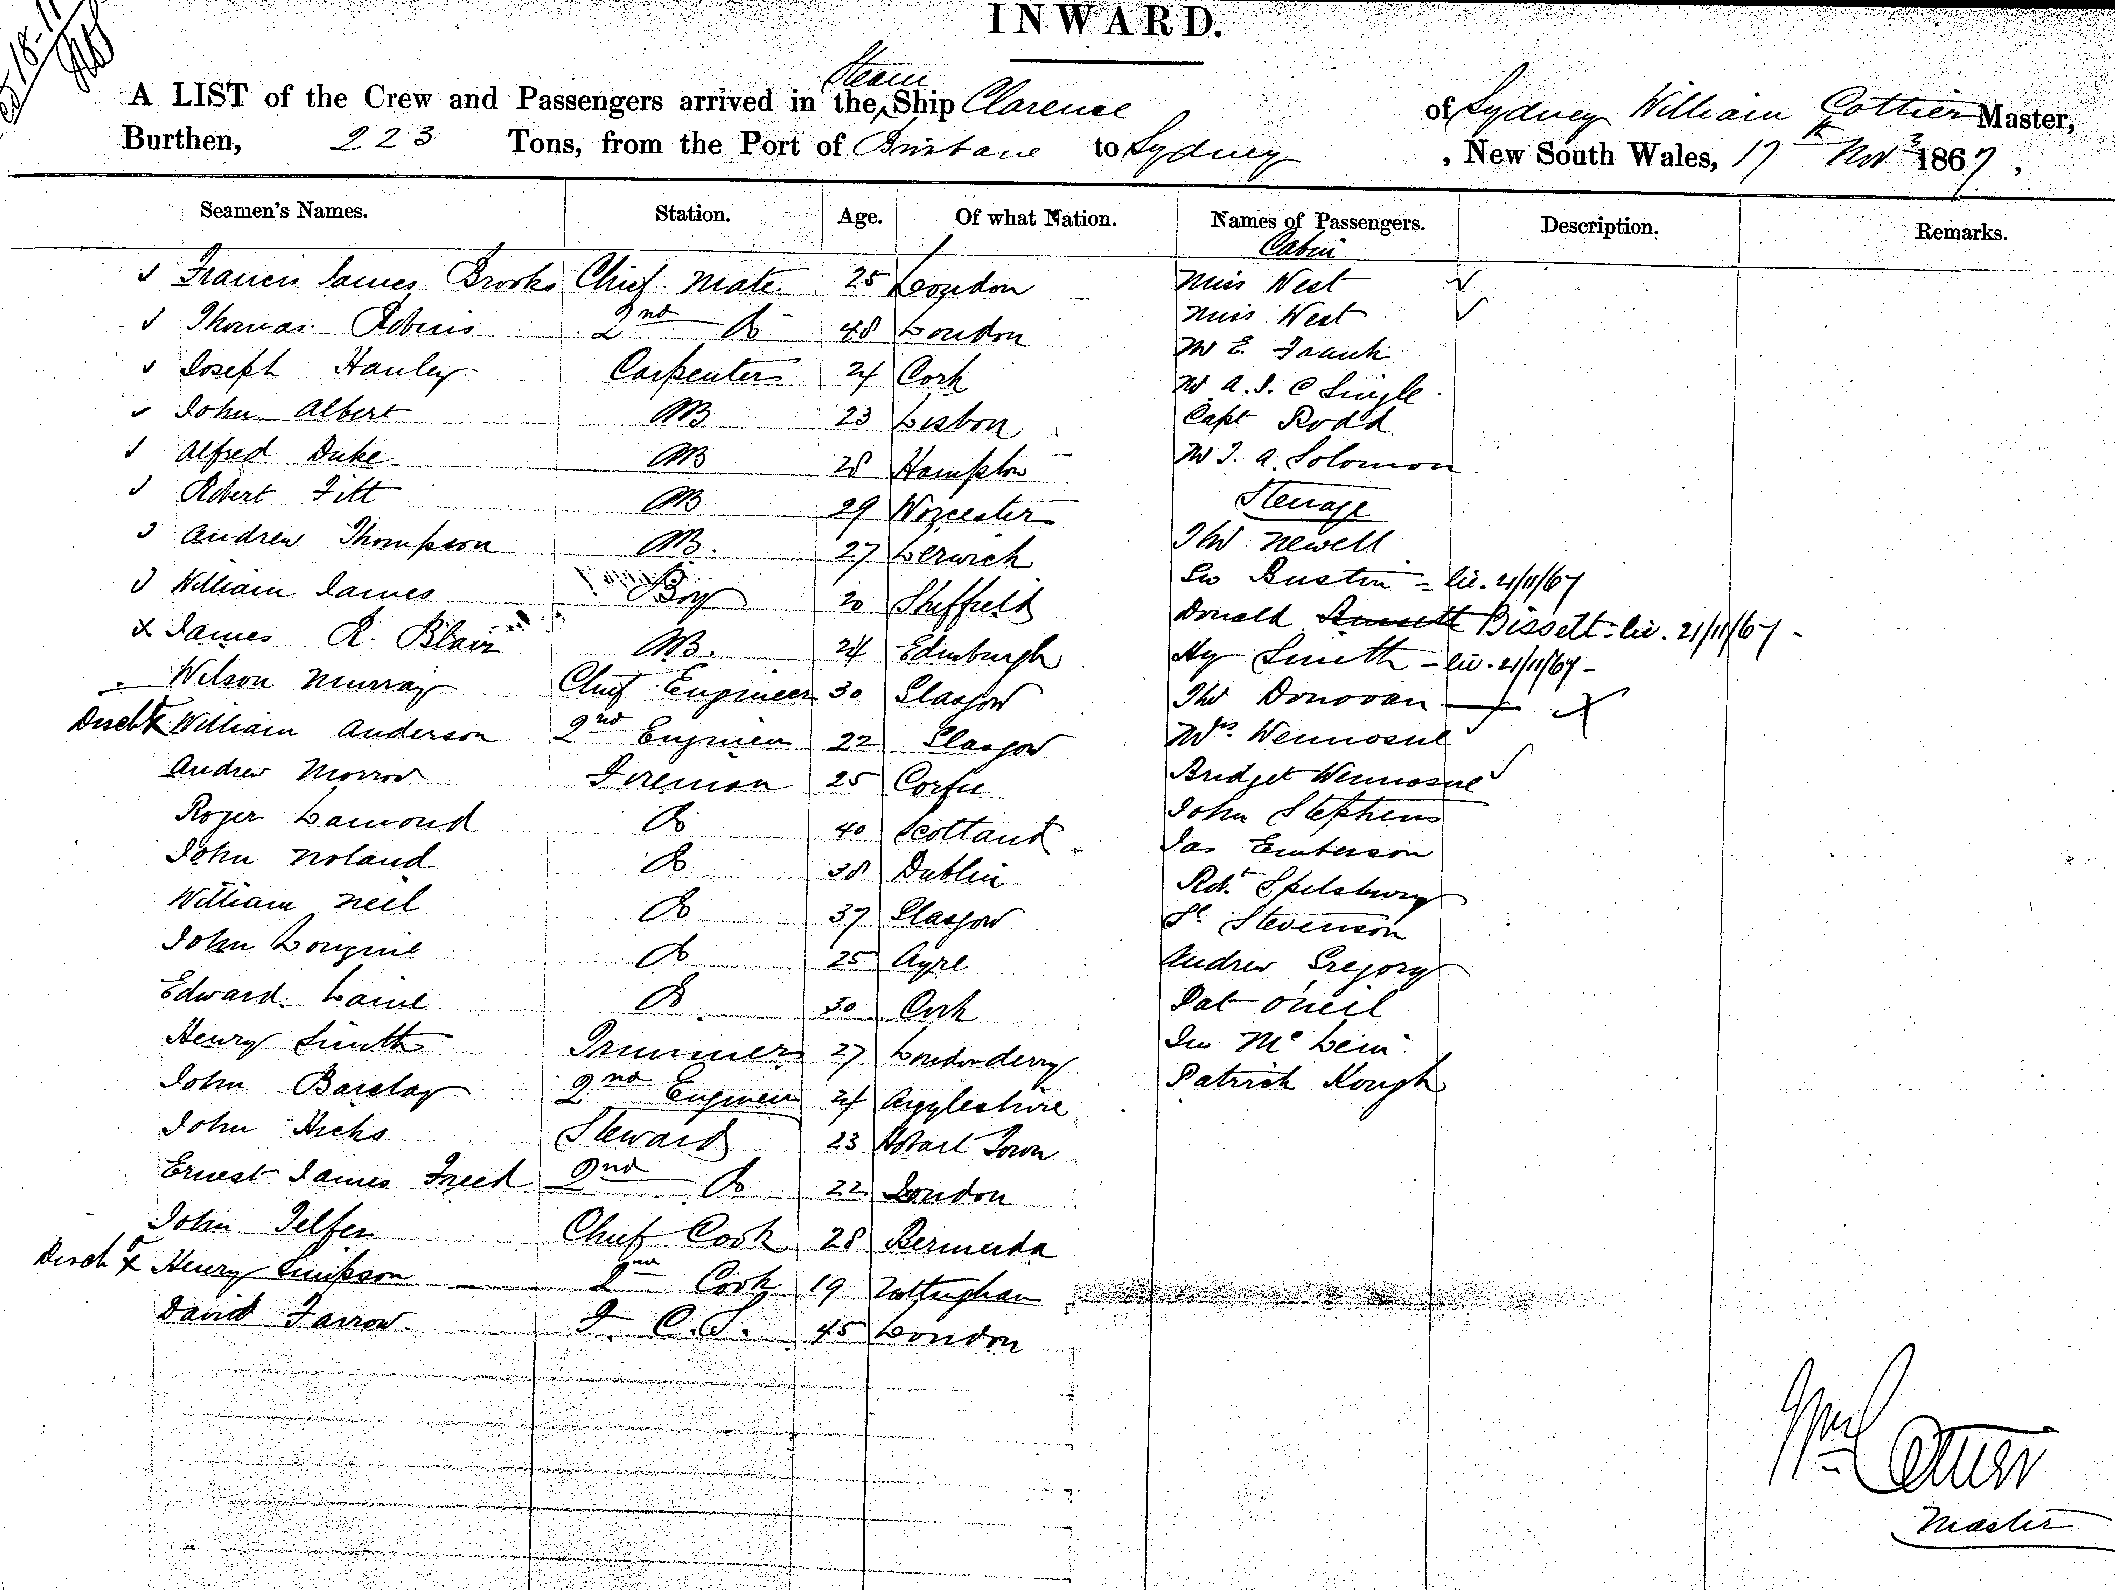 INWARD.
A LIST of the Crew and Passengers arrived in the Steam Ship Clarence of Sydney William Cottier Master,
Burthen, 223 Tons, from the Port of Brisbane to Sydney, New South Wales, 17th Novr 1867,
Seamen's Names. Station. Age. Of what Nation. Names of Passengers. Description. Remarks.
Cabin
Francis James Brooks Chief Mate 25 London Miss West
Thomas Robins 2nd Do 48 London Miss West
Joseph Hanley Carpenter 24 Cork Mr E. Frank
John Albert AB 23 Lisbon Mr A. J. C Single
Alfred Duke AB 28 Hampton Capt Rodd
Robert Fitt AB 29 Worcester Mr J. A. Solomon
Steerage
Andrew Thompson AB. 27 Lerwick Thos Newell
William James Boy 20 Sheffield Jno Bustin - lic. 21/11/67
x James R. Blair AB. 24 Edinburgh Donald Bissett - lic. 21/11/67 -
Wilson Murray Chief Engineer 30 Glasgow Hy Smith - lic. 21/11/67 -
Disch x William Anderson 2nd Engineer 22 Glasgow Thos Donovan X
Andrew Morrow Fireman 25 Corfu Mrs
Roger Lamond Do 40 Scotland Bridget
John Noland Do 38 Dublin John Stephens
William Neil Do 37 Glasgow Jas Emberson
John Do 25 Ayre Robt Spilsbury
Edward Laine Do 30 Cork Stevenson
Henry Smith Trimmer 27 Londonderry Andrew Gregory
John Barclay 2nd Engineer 24 Argyleshire Pat O'Neil
John Hicks Steward 23 Hobart Town Jno
Ernest James Freed 2nd Do 22 London Patrick Hough
John Telfer Chief Cook 28 Bermuda
Disch x Henry Simpson 2nd Cook 19 Nottingham
David Farrow F. C. S. 45 London
Wm Cottier
Master